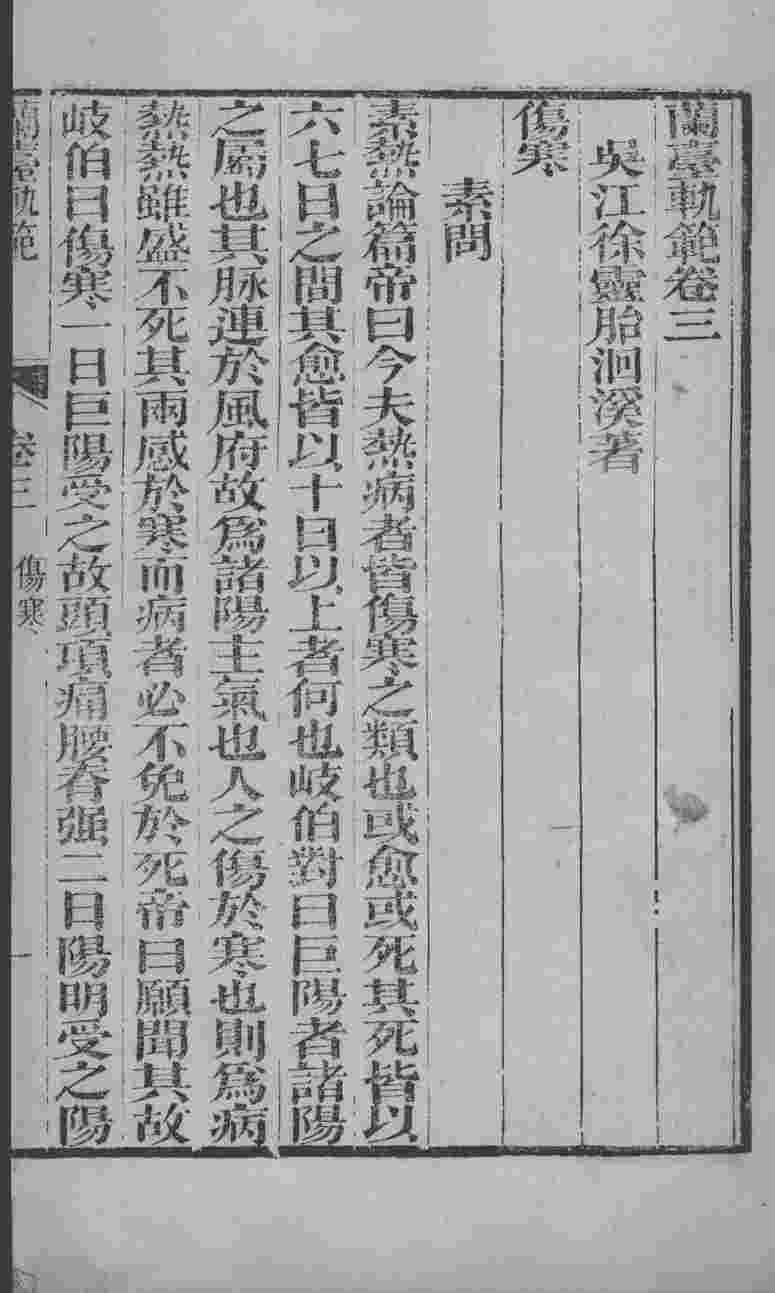 蘭臺軌範卷三
吳江徐靈胎洄溪著
傷寒
素問
素熱論篇帝曰今夫熱病者皆傷寒之類也或愈或死其死皆以
六七日之間其愈皆以十日以上者何也岐伯對曰巨陽者諸陽
之屬也其脉連於風府故爲諸陽主氣也人之傷於寒也則爲病
熱熱雖盛不死其兩感於寒而病者必不免於死帝曰願聞其故
岐伯曰傷寒一日巨陽受之故頭項痛腰脊强二日陽明受之陽
蘭臺軌範 卷三 傷寒 一